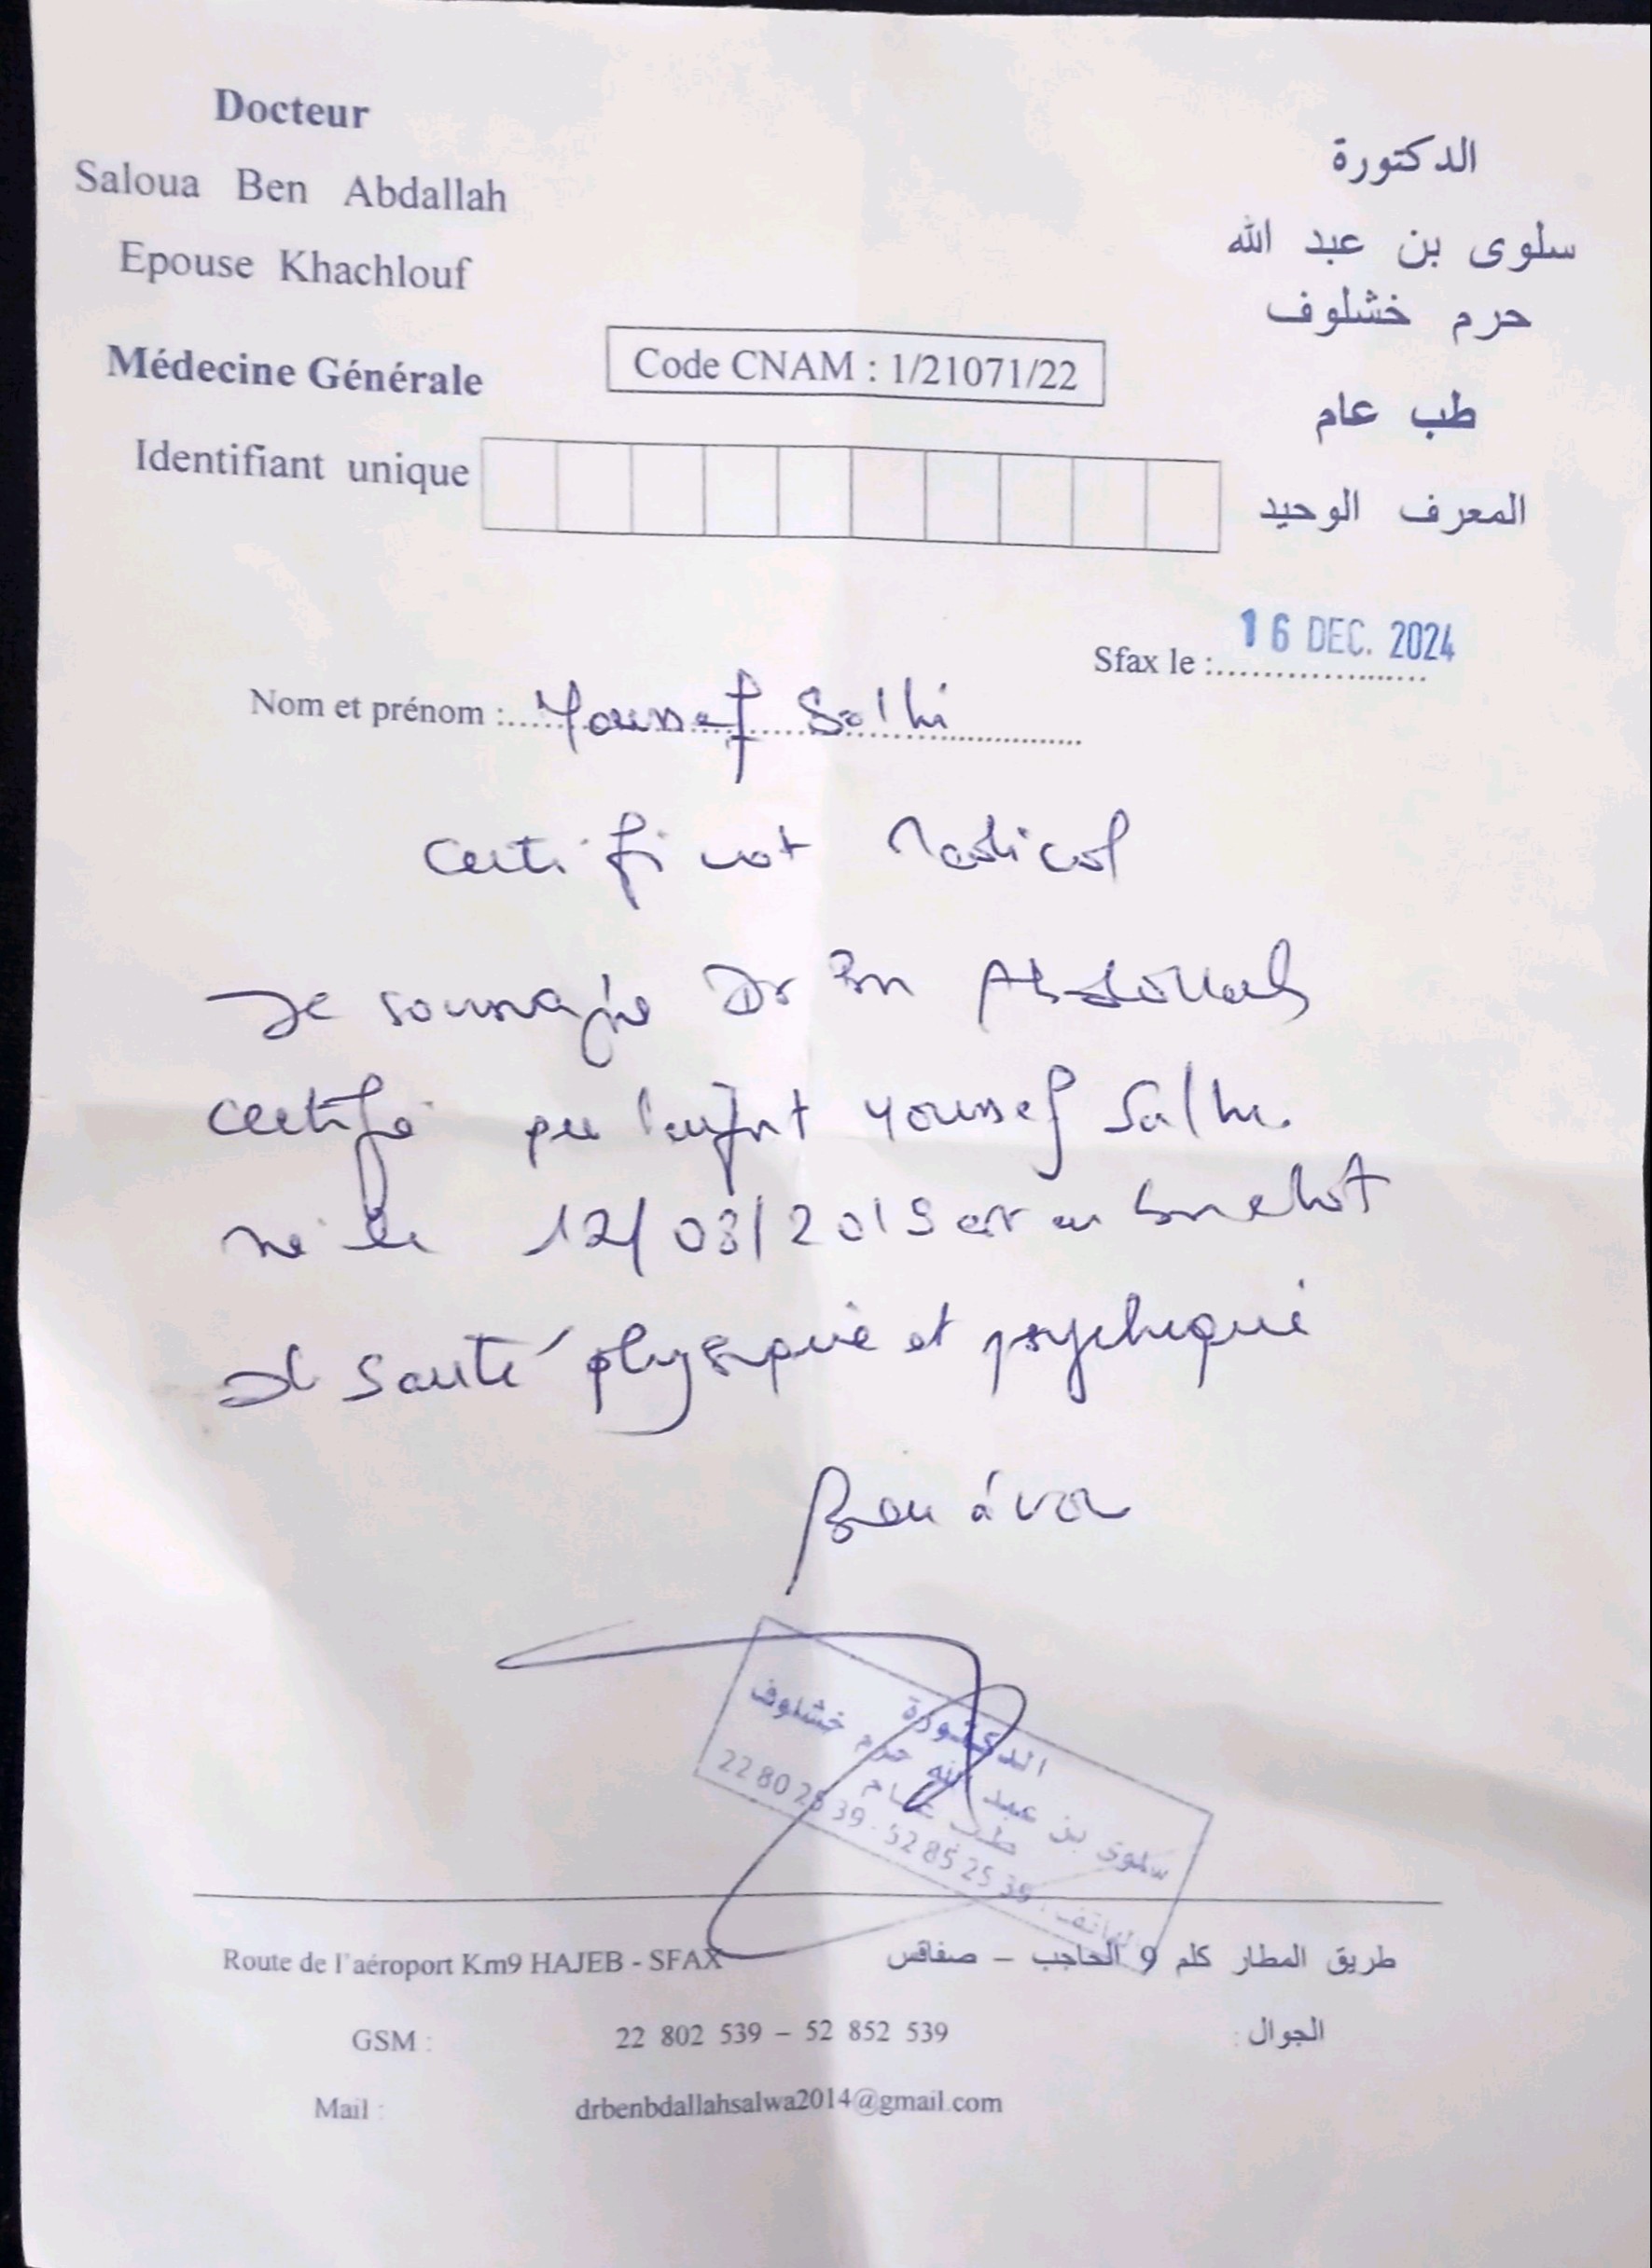 Docteur
Saloua Ben Abdallah
Epouse Khachlouf
Médecine Générale
Identifiant unique
Code CNAM : 1/21071/22
الدكتورة
سلوى بن عبد الله
حرم خشلوف
طب عام
المعرف الوحيد
Sfax le : 16 DEC. 2024
Nom et prénom : Youssef Salhi
Certificat Médical
Je soussignée Dr Ben Abdallah
certifie que l'enfant Youssef Salhi
né le 12/03/2019 est en bon état
de santé physique et psychique
الدكتورة
سلوى بن عبد الله حرم خشلوف
طب عام
الهاتف : 22 80 25 39 - 52 85 25 39
Route de l'aéroport Km9 HAJEB - SFAX
طريق المطار كلم 9 الحاجب – صفاقس
GSM : 22 802 539 – 52 852 539 الجوال :
Mail : drbenbdallahsalwa2014@gmail.com